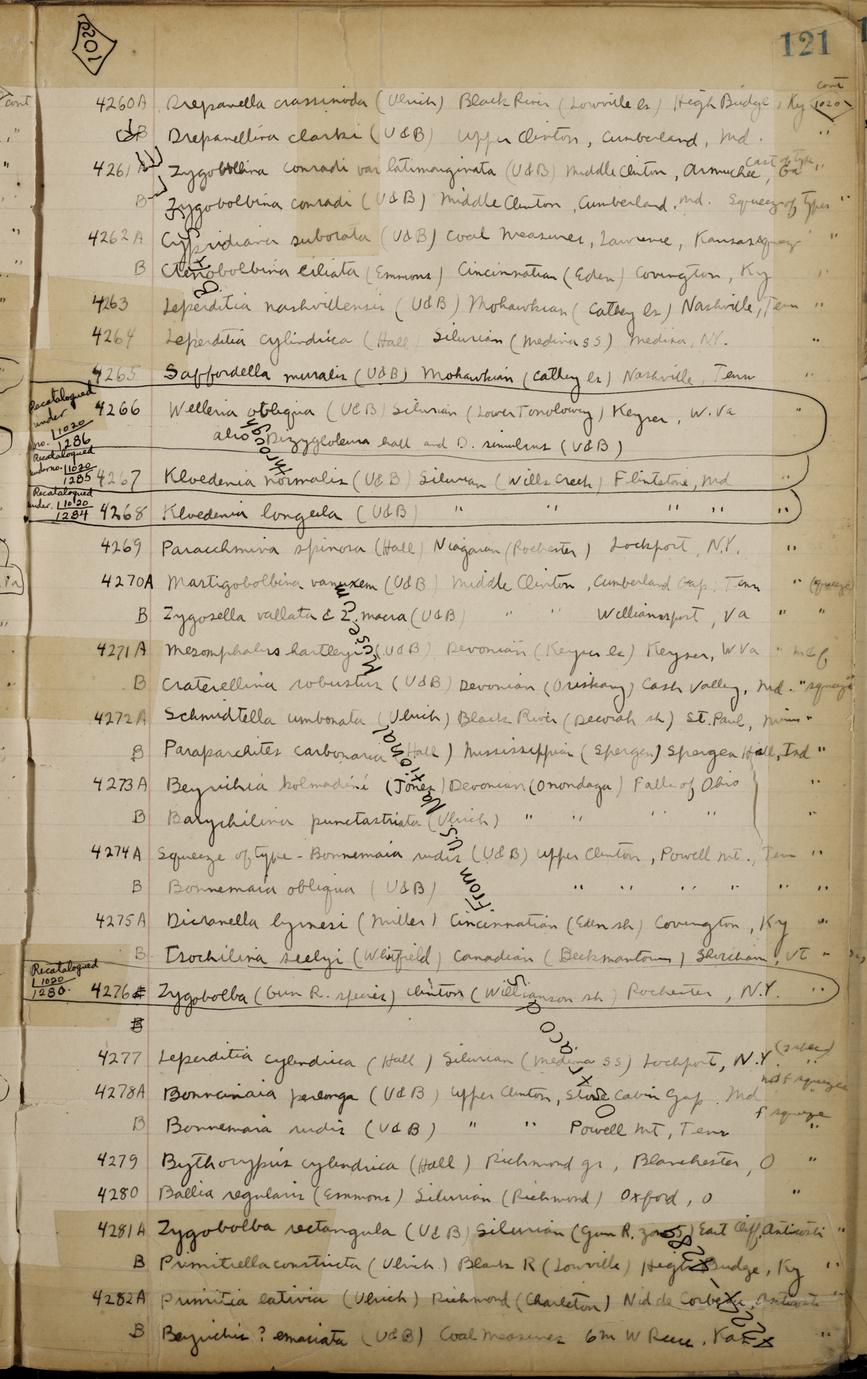 1020
121
cont
4260A Drepanella crassinoda (Ulrich) Black River (Lowville ls) High Bridge, Ky 1020
B Drepanellina clarki (U&B) Upper Clinton, Cumberland, Md. "
cast of type
4261A Zygobolbina conradi var latimarginata (U&B) Middle Clinton, Armuchee, Ga "
B Zygobolbina conradi (U&B) Middle Clinton, Cumberland, Md. Squeeze of types "
4262A Cypridiana suborata (U&B) Coal Measures, Lawrence, Kansas squeeze "
B Ctenobolbina ciliata (Emmons) Cincinnatian (Eden) Covington, Ky "
4263 Leperditia nashvillensis (U&B) Mohawkian (Cathey ls) Nashville, Tenn "
4264 Leperditia cylindrica (Hall) Silurian (Medina ss) Medina, N.Y. "
4265 Saffordella muralis (U&B) Mohawkian (Cathey ls) Nashville, Tenn "
Recatalogued under no. 1020 1286
4266 Welleria obliqua (U&B) Silurian (Lower Tonoloway) Keyser, W.Va "
also Dizygopleura halli and D. simulans (U&B)
Recatalogued under no. 1020 1285
4267 Kloedenia normalis (U&B) Silurian (Wills Creek) Flintstone, Md
Recatalogued under 1020 1284
4268 Kloedenia longula (U&B) " " " " "
4269 Paraechmina spinosa (Hall) Niagaran (Rochester) Lockport, N.Y. "
4270A Mastigobolbina vanuxemi (U&B) Middle Clinton, Cumberland Gap, Tenn " (squeeze)
B Zygosella vallata & Z. macra (U&B) " " Williamsport, Va " "
4271A Mesomphalus hartleyi (U&B) Devonian (Keyser ls) Keyser, W Va "
B Craterellina robustus (U&B) Devonian (Oriskany) Cash Valley, Md. " squeeze
4272A Schmidtella umbonata (Ulrich) Black River (Decorah sh) St. Paul, Minn "
B Paraparchites carbonaria (Hall) Mississippian (Spergen) Spergen Hill, Ind "
4273A Beyrichia kolmodini (Jones) Devonian (Onondaga) Falls of Ohio "
B Barychilina punctastriata (Ulrich) " " " " "
4274A Squeeze of type - Bonnemaia rudis (U&B) Upper Clinton, Powell Mt., Tenn "
B Bonnemaia obliqua (U&B) " " " " " "
4275A Dicranella bymesi (Miller) Cincinnatian (Eden sh) Covington, Ky "
B Isochilina seelyi (Whitfield) Canadian (Beekmantown) Shoreham, Vt "
Recatalogued 1020 1280.
4276 Zygobolba (Gun R. species) Clinton (Williamson sh) Rochester, N.Y. "
B
4277 Leperditia cylindrica (Hall) Silurian (Medina ss) Lockport, N.Y. "
4278A Bonnemaia perlonga (U&B) Upper Clinton, Stone Cabin Gap. Md squeeze
B Bonnemaia rudis (U&B) " " Powell Mt, Tenn squeeze "
4279 Bythocypris cylindrica (Hall) Richmond gr, Blanchester, O "
4280 Bollia regularis (Emmons) Silurian (Richmond) Oxford, O "
4281A Zygobolba rectangula (U&B) Silurian (Gun R. zone) East Cliff, Anticosti "
B Primitiella constricta (Ulrich) Black R (Lowville) High Bridge, Ky "
4282A Primitia lativia (Ulrich) Richmond (Charleton) Anticosti "
B Beyrichia? emaciata (U&B) Coal Measures 6m W Reece, Kan "
4225X - 4282X Oxford Co. From U.S. National Museum through